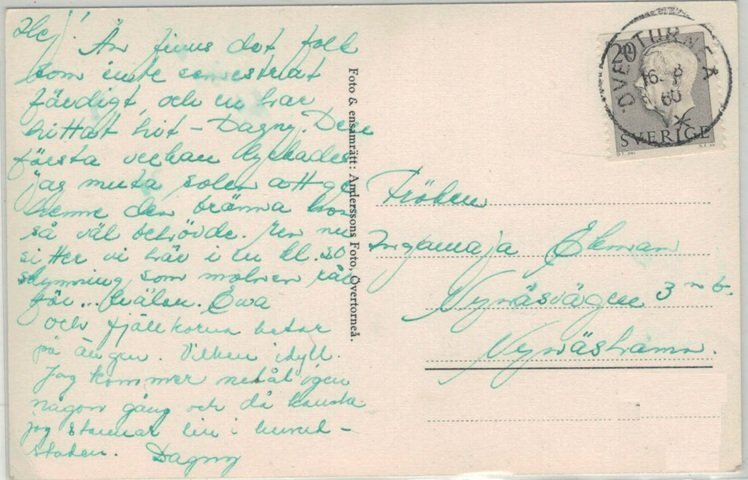 Hej!
Än finns det folk
som inte semestrat
färdigt, och en har
hittat hit – Dagny. Den
första veckan lyckades
jag muta solen att ge
henne den bränna hon
så väl behövde. Men nu
sitter vi här i en kl. 20
skymning som molnen rår
för... Kvälen. Ewa
och fjällkorna betar
på ängen. Vilken idyll.
Jag kommer nedåt igen
någon gång och då kanske
jag stannar lite i huvud-
staden. Dagny
Foto & ensamrätt: Anderssons Foto, Övertorneå.
ÖVERTORNEÅ
16 8
60
20
SVERIGE
Fröken
Ingamaja Ekman
Nynäsvägen 3 n b.
Nynäshamn.